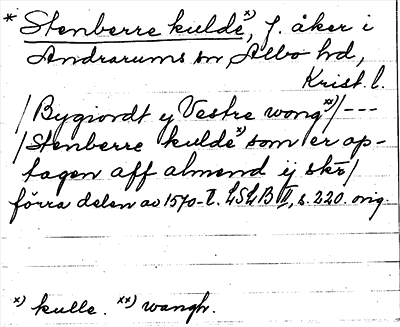 * Stenberre kulde x), f. åker i
Andrarums sn, Albo hd,
Krist. l.
/Bygiordt y Vestre wong xx)/---
/Stenberre kulde x) som er op-
tagen aff almend ij skr/
förra delen av 1570-t. LSLB II, s. 220. orig.
x) kulle. xx) wangh.